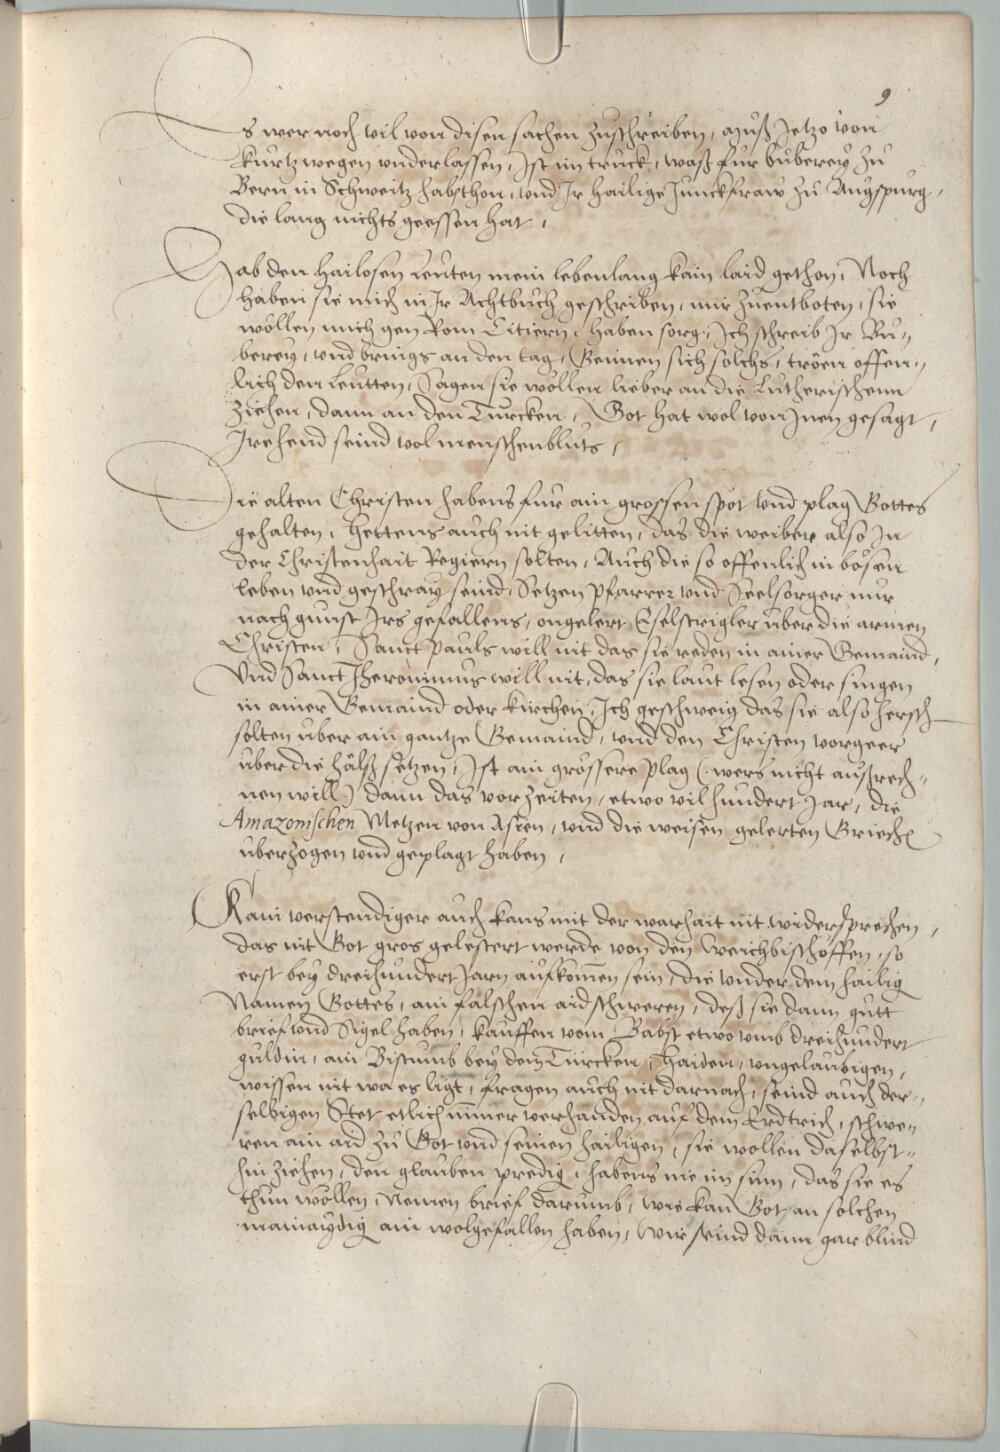 9
Es wer noch vil von disen sachen zuschreiben, muß Jetzo von
kurtz wegen vnderlassen, Ist im truck, waß fur buberey zu
Bern in Schweitz habsthon, vnd Jr hailige Junckfraw zu Augspurg,
die lang nichts geessen hat,
Hab den hailosen leuten mein lebenlang kain laid gethon, Noch
haben sie mich in Jr Achtbuch geschriben, mir zuentboten, sie
wöllen mich gen Rom Citiern, haben sorg, Ich schreib Jr Bu„
berey, vnd brings an den tag, Gennen sich solchs, tröen offen„
lich den leutten, Sagen sie wöllen lieber an die Lutherischenn
ziehen, dann an den Turcken, Got hat wol von Jnen gesagt,
Jre hend seind vol menschenbluts,
Die alten Christen habens fur ain grossen spot vnd plag Gottes
gehalten, hettens auch nit gelitten, das die weiber also Jn
der Christenhait Regiern solten, Auch die so offenlich in bösen
leben vnd geschray seind, Setzen Pfarrer vnd Seelsorger nur
nach gunst Jrs gefallens, ongelert Eselstrigler über die armen
Christen, Sanct Pauls will nit das sie reden in ainer Gemaind,
Vnd Sanct Jheronimus will nit, das sie laut lesen oder singen
in ainer Gemaind oder kirchen, Ich geschweig das sie also hersch
solten uber ain gantze Gemaind, vnd den Christen vorgeer
über die hälß setzen, Ist ain grössere plag (wers nicht außrech„
nen will) dann das vor zeiten, etwo vil hundert Jar, die
Amazonischen Metzen von Asien, vnd die weisen gelerten Griech
überzogen vnd geplagt haben,
Kain verstendiger auch kans mit der warhait nit widersprechen,
das nit Got gros gelestert werde von den Weichbischoffen, so
erst bey dreihundert Jarn aufkomen sein, die vnder dem hailig
Namen Gottes, ain falschen aid schweren, deß sie dann gutt
brief vnd Sigel haben, kauffen vom Babst etwo vmb dreihundert
guldin, ain Bistumb bey den Turcken, Haiden, vngelaubigen,
wissen nit wa es ligt, fragen auch nit darnach, seind auch der„
selbigen Stet etlich nimmer verhanden auf dem Erdtrich, schwe„
ren ain aid zu Got vnd seinen hailigen, sie wollen daselbst„
hin ziehen, den glauben predig, habens nie im sinn, das sie es
thun wöllen, Nemen brief darumb, wie kan Got an solchen
mainaydig ain wolgefallen haben, Wir seind dann gar blind